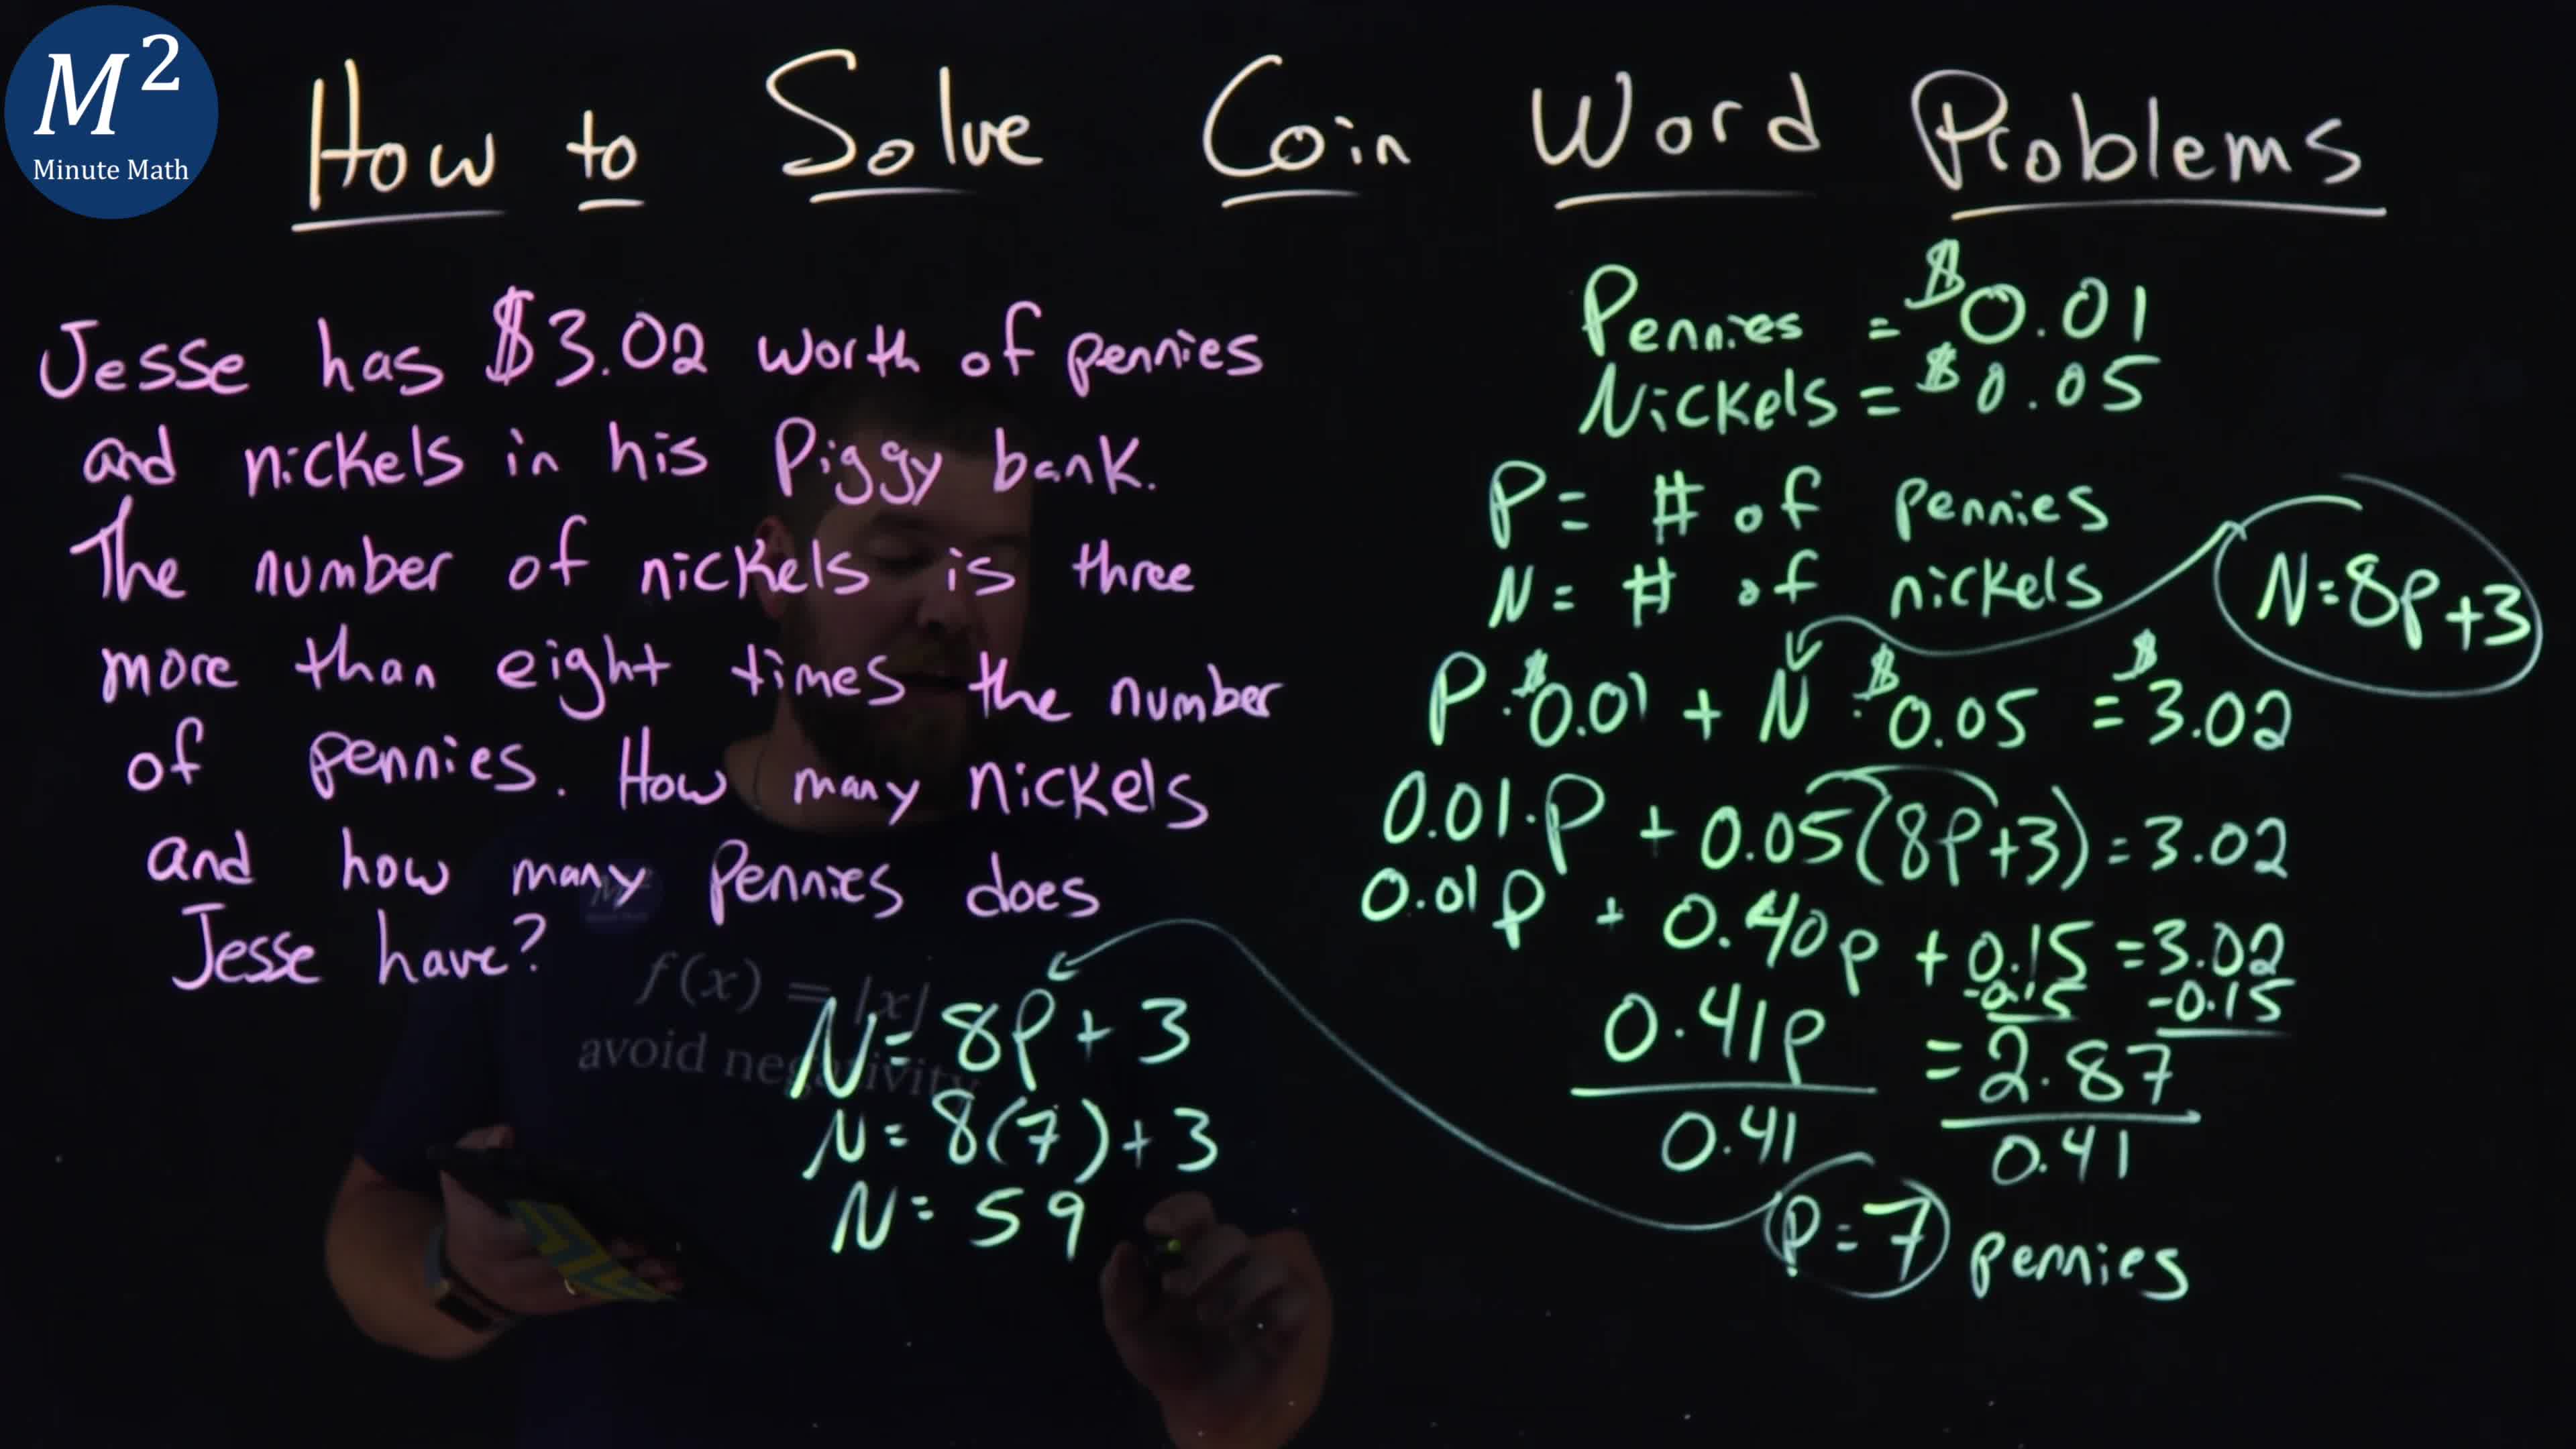 M²
Minute Math
How to Solve Coin Word Problems
Jesse has $3.02 worth of pennies
and nickels in his Piggy bank.
The number of nickels is three
more than eight times the number
of pennies. How many nickels
and how many Pennies does
Jesse have?
f(x) = |x|
avoid negativity
N = 8P + 3
N = 8(7) + 3
N = 59
Pennies = $0.01
Nickels = $0.05
P = # of pennies
N = # of nickels
N = 8P + 3
P · $0.01 + N · $0.05 = $3.02
0.01 · P + 0.05(8P + 3) = 3.02
0.01P + 0.40P + 0.15 = 3.02
-0.15 -0.15
0.41P = 2.87
0.41 0.41
P = 7 pennies